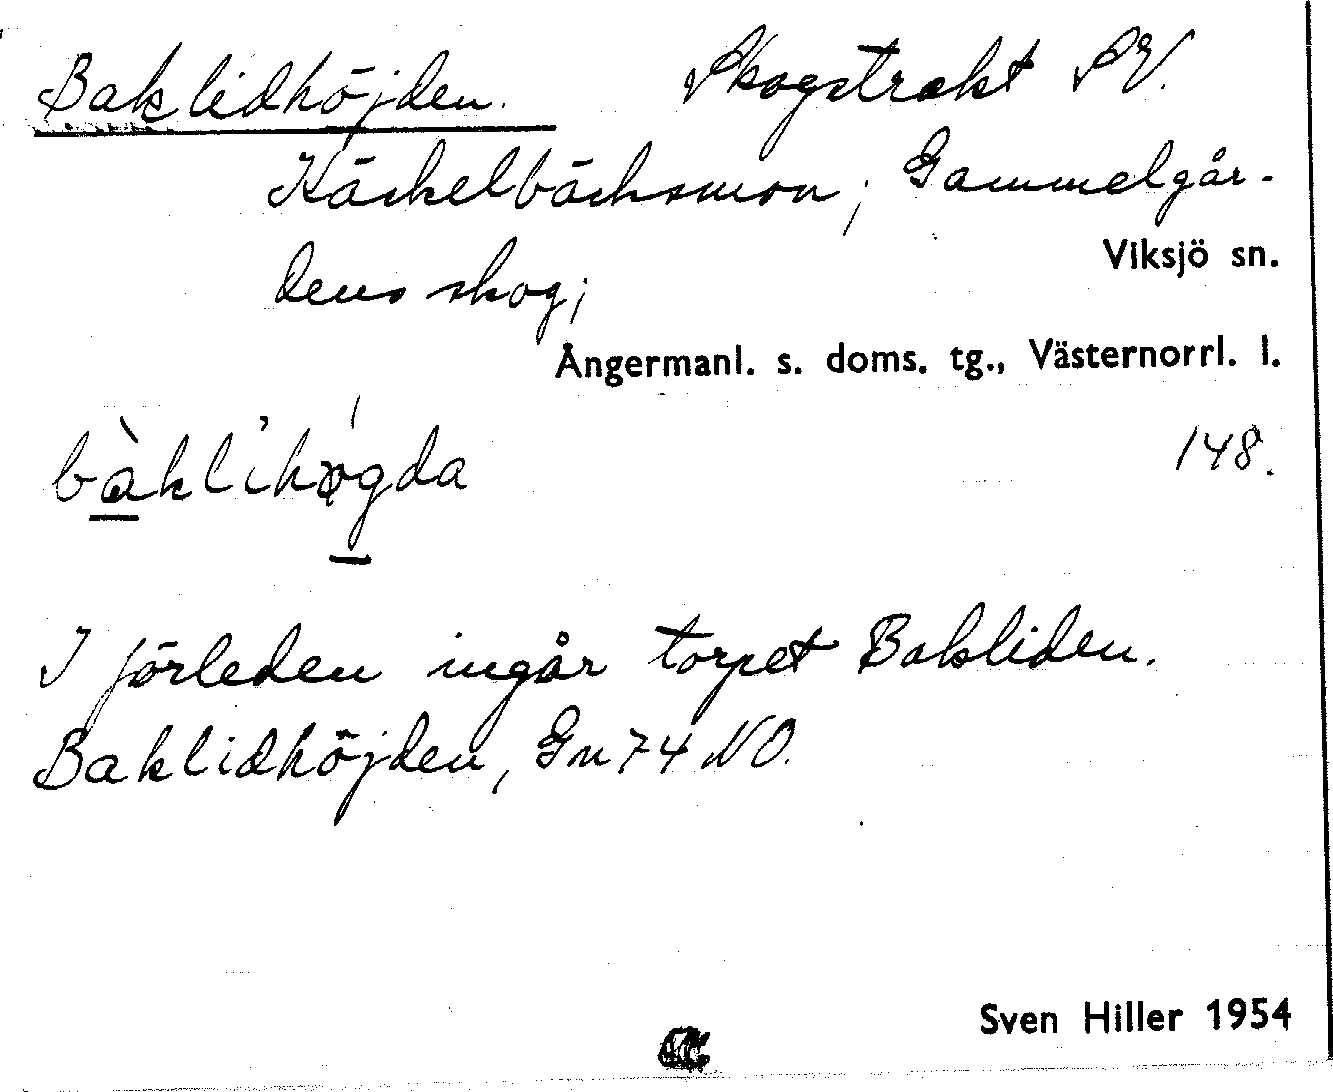 Baklidhöjden. Skogstrakt SV.
Käckelbäcksmon; Gammelgår-
dens skog;
Viksjö sn.
Ångermanl. s. doms. tg., Västernorrl. l.
bàklihøgda
148.
I förleden ingår torpet Bakliden.
Baklidhöjden, Gn 74 NO.
Sven Hiller 1954